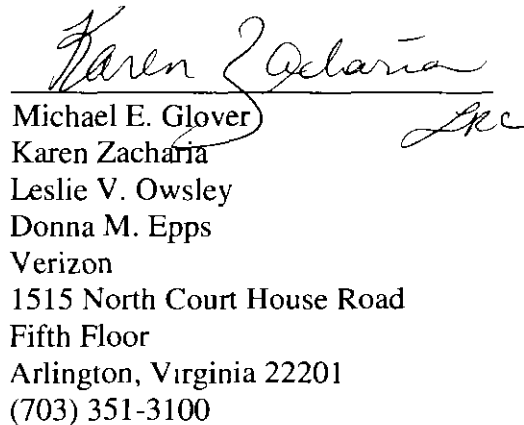 Karen Zacharia
Michael E. Glover
Karen Zacharia
Leslie V. Owsley
Donna M. Epps
Verizon
1515 North Court House Road
Fifth Floor
Arlington, Virginia 22201
(703) 351-3100